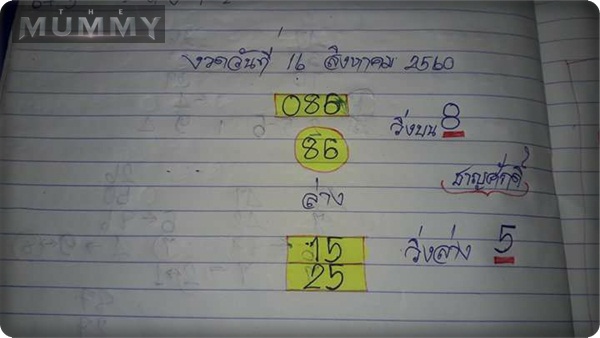 THE
MUMMY
งวดวันที่ 16 สิงหาคม 2560
086
86
วิ่งบน 8
ล่าง
ชาญศักดิ์
15
25
วิ่งล่าง 5